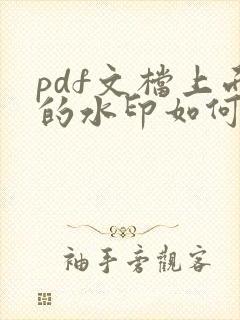 pdf文檔上
的水印如何
袖手旁觀客